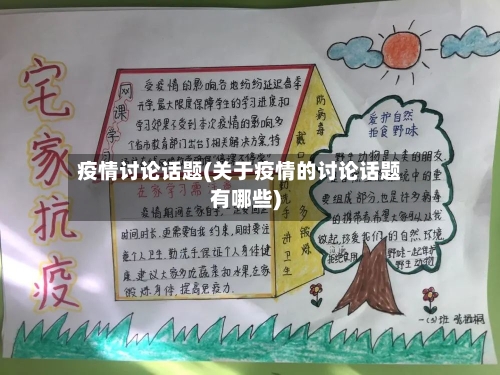 宅家抗疫
网课学习
受疫情的影响各地纷纷延迟春季
开学,最大限度保障学生的学习进度和
学习效果不受到本次疫情的影响,多
个省市教育部门出台了相关解决方案,特
疫情讨论话题(关于疫情的讨论话题
有哪些)
在家学习需
疫情期间在家自学,
时间,时长,更需要自我约束,同时要注
意个人卫生,勤洗手,保证个人身体健
康,建议大家多吃蔬菜和水果,在家
锻炼身体,提高免疫力.
防病毒
戴口
勤洗手
讲卫生
多锻炼
爱护自然
拒食野味
野生动物是人类的朋友,
中的重
要组成部分,也是许多病毒
的携带者,希望大家可以从我
做起,珍爱我们的自然环境,
拒绝食用野味,一起保护
野生动物